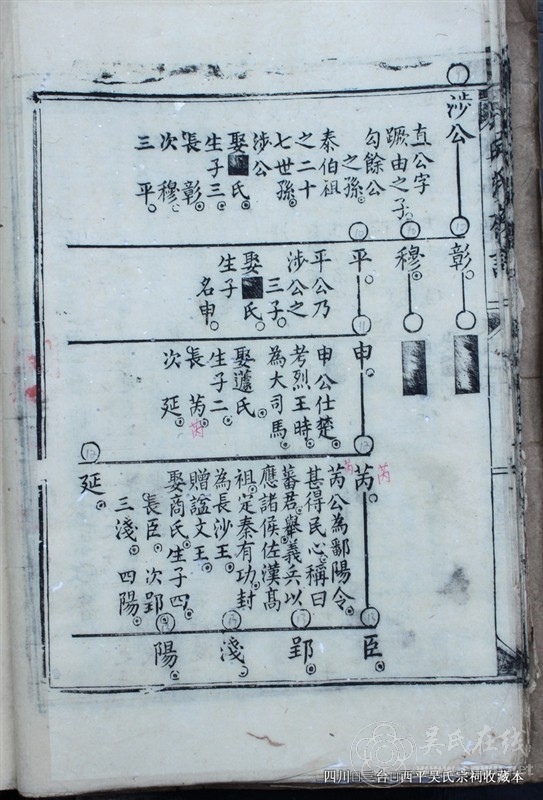 涉公
直公字
蹶由之子
勾餘公
之孫
泰伯祖
之二十
七世孫
涉公
娶■氏
生子三
長彰
次穆
三平
彰
穆
平
平公乃
涉公之
三子
娶■氏
生子
名申
申
申公仕楚
考烈王時
為大司馬
娶蘧氏
生子二
長芮
芮
次延
芮
芮
芮
芮公為鄱陽令
甚得民心稱曰
蕃君舉義兵以
應諸侯佐漢髙
祖定秦有功封
為長沙王
贈諡文王
娶商氏生子四
長臣 次郢
三淺 四陽
延
臣
郢
淺
陽
吳氏在线
四川
三台
西平吴氏宗祠收藏本